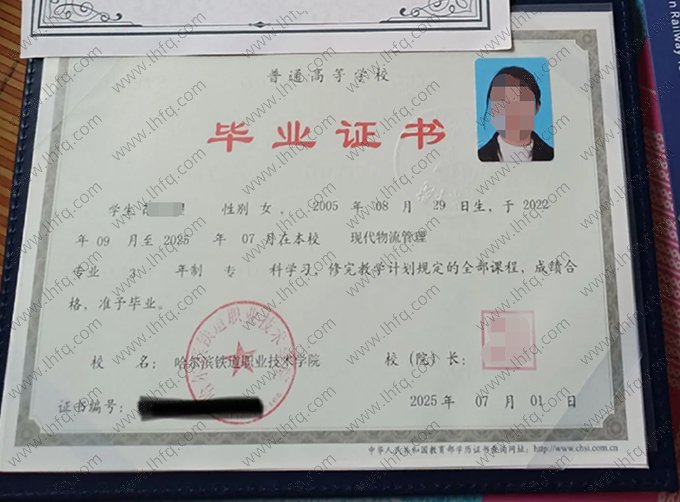 普通高等学校
毕业证书
学生 性别 女, 2005 年 08 月 29 日生,于 2022
年 09 月至 2025 年 07 月在本校 现代物流管理
专业 3 年制 专 科学习,修完教学计划规定的全部课程,成绩合
格,准予毕业。
校 名: 哈尔滨铁道职业技术学院 校(院)长:
证书编号: 2025 年 07 月 01 日
中华人民共和国教育部学历证书查询网址: http://www.chsi.com.cn
哈尔滨铁道职业技术学院
www.lhfq.com
n Railway